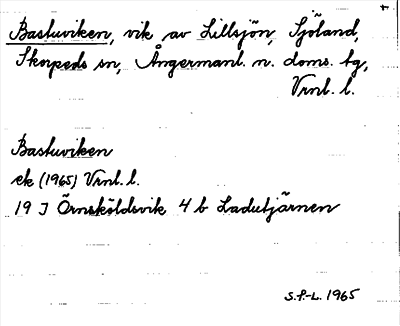 Bastuviken, vik av Lillsjön, Sjöland,
Skorpeds sn, Ångermanl. n. doms. tg,
Vrnl. l.
Bastuviken
ek (1965) Vrnl. l.
19 J Örnsköldsvik 4 b Ladutjärnen
S.F.-L. 1965